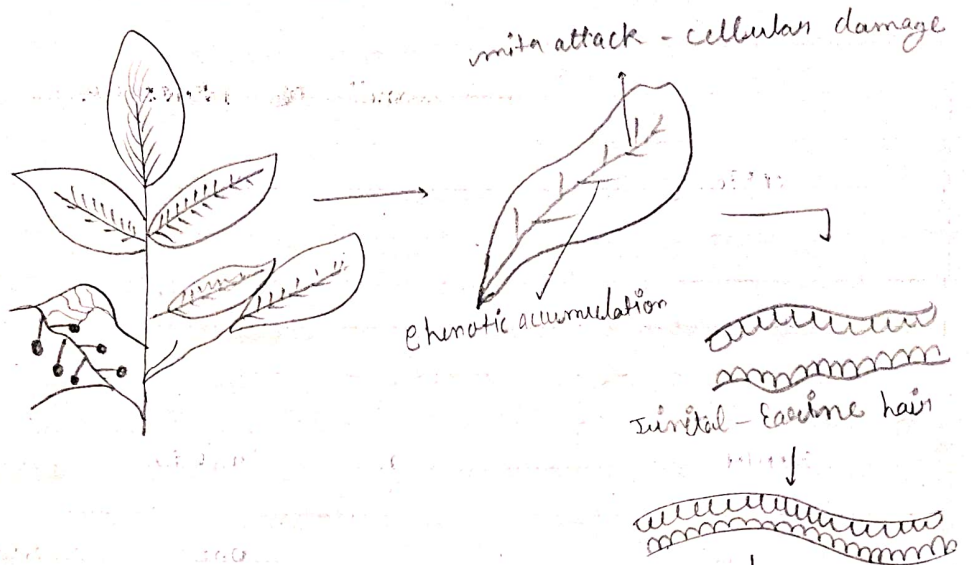 mita attack - cellular damage
Phenotic accumulation
Iunital - Earine hair